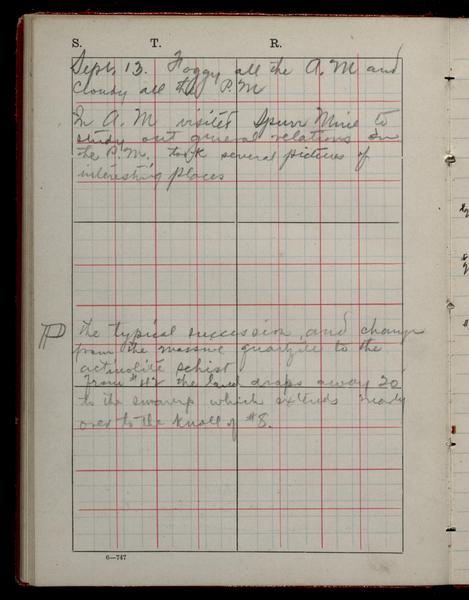 S. T. R.
Sept. 13. Foggy all the A.M and
Cloudy all the P.M
In A.M visited Spurr Mine to
study out general relations In
the P.M. took several pictures of
interesting places
P the typical succession, and change
from the massive quartzite to the
actinolite schist
From # the land drops away 20'
to the swamp which extends nearly
over to the knoll of #8.
6—747